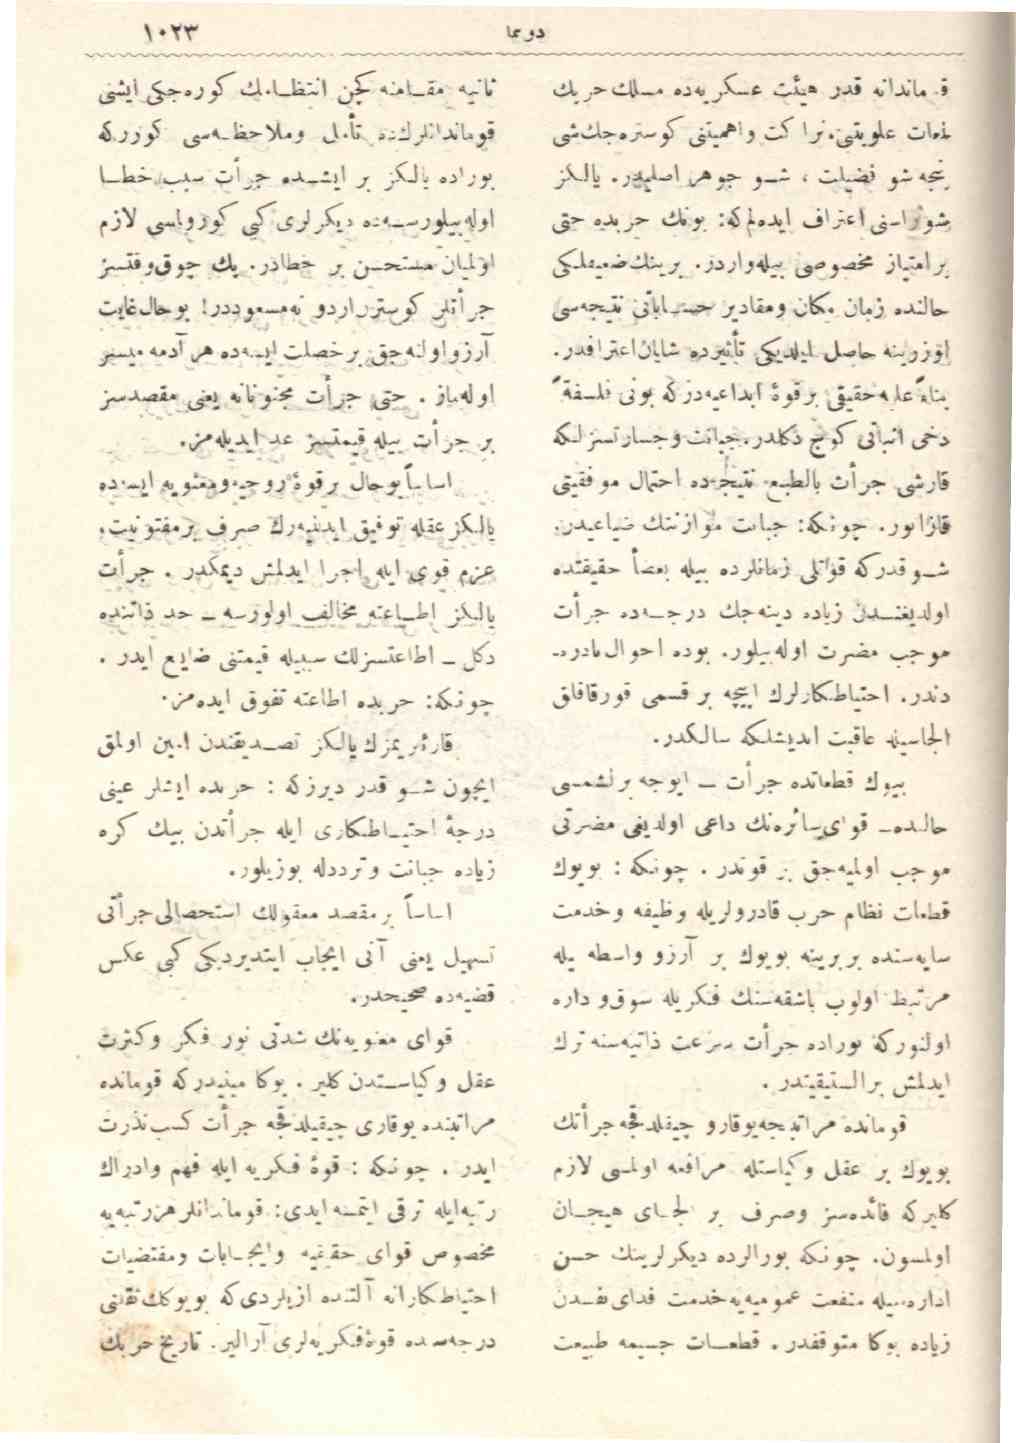 دوسما
١٠٢٣
قوماندانه قدر هيئت عسكريه‌ده مسلك حربك
علويتنى، نزاكت واهميتنى كوستره‌جك شى
نجه شو فضيلت ، شو جوهر اصليدر. يالكز
شوراسنى اعتراف ايده‌لم‌كه: بونك حربده حتى
بر امتياز مخصوصى بيله واردر. برينك ضعيفلكى
حالنده زمان مكان ومقادير حساباتى نتيجه‌سى
اوزرينه حاصل ايلديكى تأثيرده شايان اعترافدر.
بناءً عليه حقيقى بر قوۀ ابداعيه‌در كه بونى فلسفةً
دخى اثباتى كوج دكلدر. جبانت وجسارتسزلكه
قارشى جرأت بالطبع نتيجه‌ده احتمال موفقيتى
قازانور. چونكه: جبانت موازنتك ضياعيدر.
شو قدركه قوتلى زمانلرده بيله بعضاً حقيقتده
اولديغندن زياده دينه‌جك درجه‌ده جرأت
موجب مضرت اوله‌بيلور. بوده احوال نادره‌-
دندر. احتياطكارلرك ايچه بر قسمى قورقاقلق
الجاسيله عاقبت انديشلكه سالكدر.
بيوك قطعاتده جرأت ـ ايوجه برلشمسى
حالنده ـ قواى سائره‌نك داعى اولديغى مضرتى
موجب اوليه‌جق بر قوتدر . چونكه : بويوك
قطعات نظام حرب قادرولريله وظيفه وخدمت
سايه‌سنده بربرينه بويوك بر آرزو واسطه يله
مرتبط اولوب باشقه‌سنك فكريله سوق واداره
اولنوركه بوراده جرأت سرعت ذاتيه‌سنه ترك
ايدلمش بر الستيقيتدر .
قومانده مراتبنجه يوقارو چيقلدقجه جرأتك
بويوك بر عقل وكياستله مرافعه اولمسى لازم
كليركه فائده‌سز وصرف بر الجاى هيجان
اولمسون. چونكه بورالرده ديكرلرينك حسن
اداره‌سيله منفعت عموميه‌يه خدمت فداى نفسدن
زياده بوكا متوقفدر. قطعات جسيمه طبيعت
ثانيه مقامنه كچن انتظامك كوره‌جكى ايشنى
قوماندانلرك ده تأمل وملاحظه‌سى كوزركه
بوراده يالكز بر ايشده جرأت سبب خطا
اوله‌بيلورسه‌ده ديكرلرى كبى كورولمسى لازم
اولميان مستحسن بر خطادر. پك چوق وقتسز
جرأتلر كوسترر اردو نه مسعوددر! بو حال غايت
آرزو اولنه‌جق بر خصلت ايسه‌ده هر آدمه ميسر
اوله‌ماز . حتى جرأت مجنونانه يعنى مقصدسز
بر جرأت بيله قيمتسز عد ايديله‌مز.
اساساً بو حال بر قوۀ روحيه ومعنويه ايسه‌ده
يالكز عقله توفيق ايدلميه‌رك صرف بر مفتونيت،
عزم قوى ايله اجرا ايدلمش ديمكدر . جرأت
يالكز اطاعته مخالف اولورسه ـ حد ذاتنده
دكل ـ اطاعتسزلك سببيله قيمتنى ضايع ايدر .
چونكه: حربده اطاعته تفوق ايده‌مز.
قارئلريمزك يالكز تصديقندن امين اولمق
ايچون شو قدر ديرزكه : حربده ايشلر عينى
درجۀ احتياطكارى ايله جرأتدن بيك كره
زياده جبانت وتردد‌له بوزيلور.
اساساً بر مقصد معقولك استحصالى جرأتى
تسهيل يعنى آنى ايجاب ايتديرديكى كبى عكس
قضيه‌ده صحيحدر.
قواى معنويه‌نك شدتى نور فكر وكثرت
عقل وكياستدن كلير . بوكا مبنيدركه قومانده
مراتبنده يوقارى چيقيلدقجه جرأت كسب ندرت
ايدر . چونكه : قوۀ فكريه ايله فهم وادراك
رتبه ايله ترقى ايتمسه ايدى: قوماندانلر هر رتبه‌يه
مخصوص قواى حقيقيه وايجابات ومقتضيات
احتياطكارانه آلتنده ازيلردى كه بويوكلك نقتنى
درجه‌سنده قوۀ فكريه‌لرى آزالير. تاريخ حربك